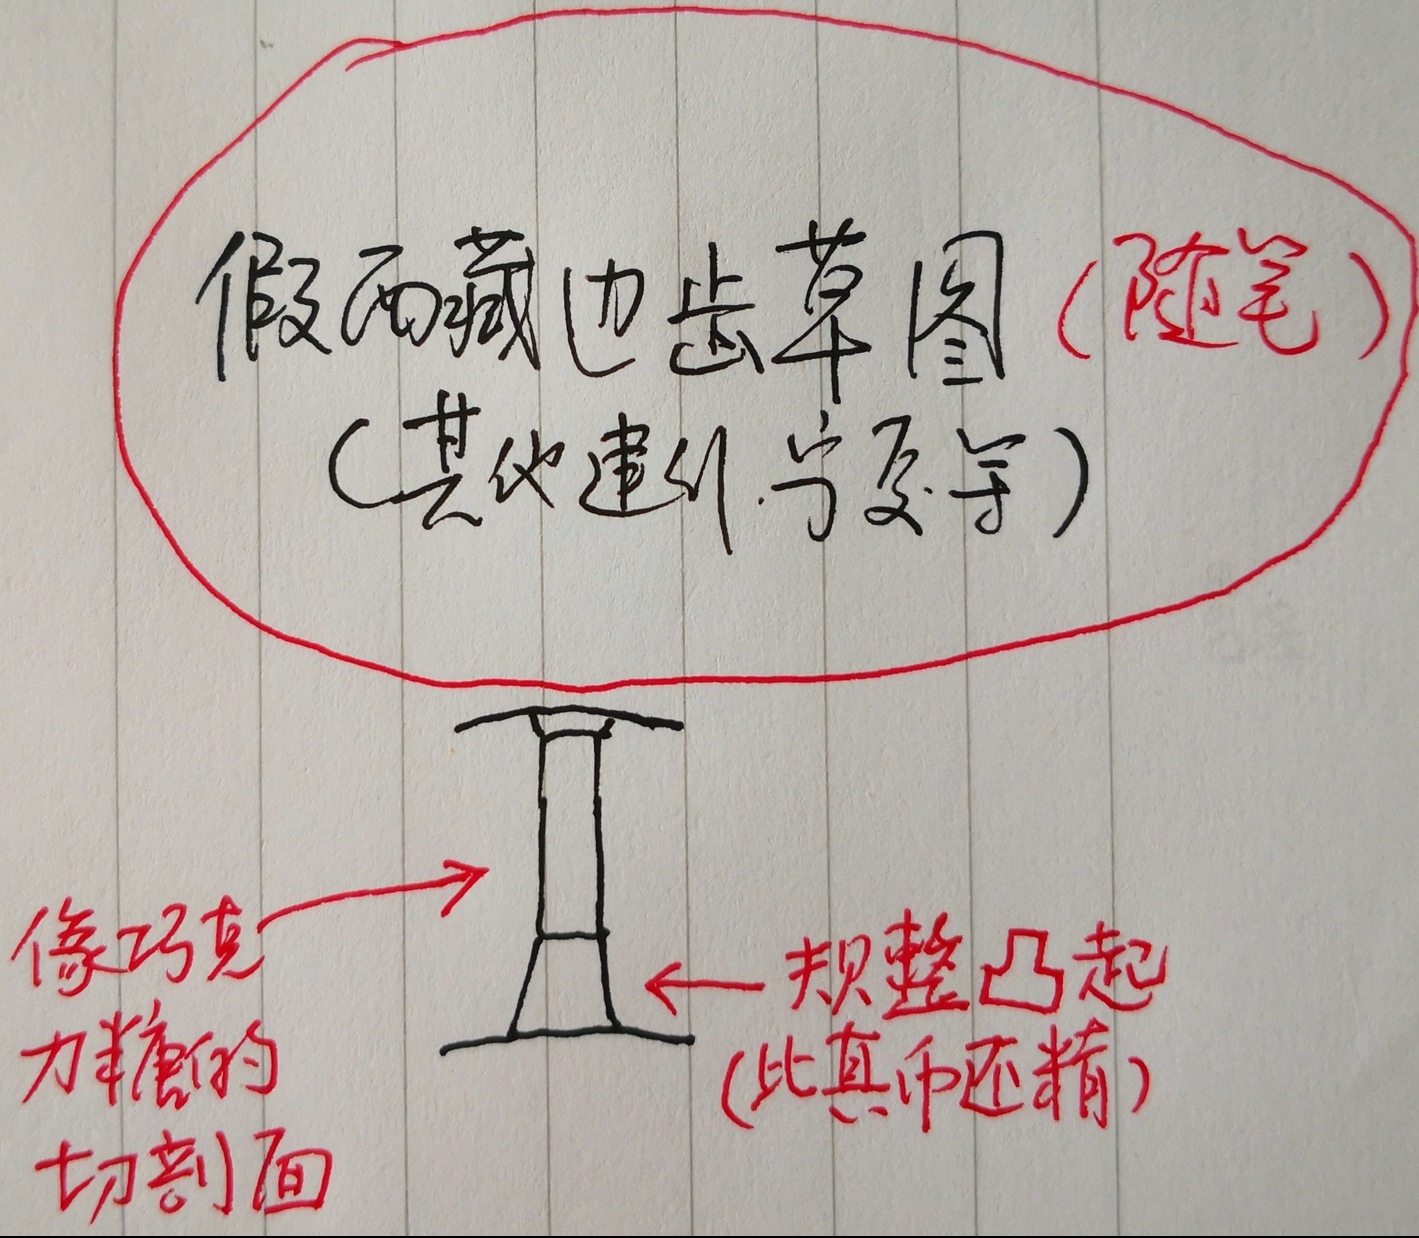 假西藏边齿草图（随笔）
（其他建行.宁夏等）
像巧克
力糖的
切剖面
规整凸起
（比真币还精）